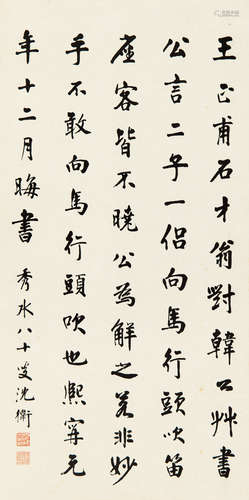 王正甫石才翁對韓公草書
公言二子一侶向馬行頭吹笛
座客皆不曉公為解之若非妙
手不敢向馬行頭吹也熙寧元
年十二月晦書
秀水八十叟沈衛